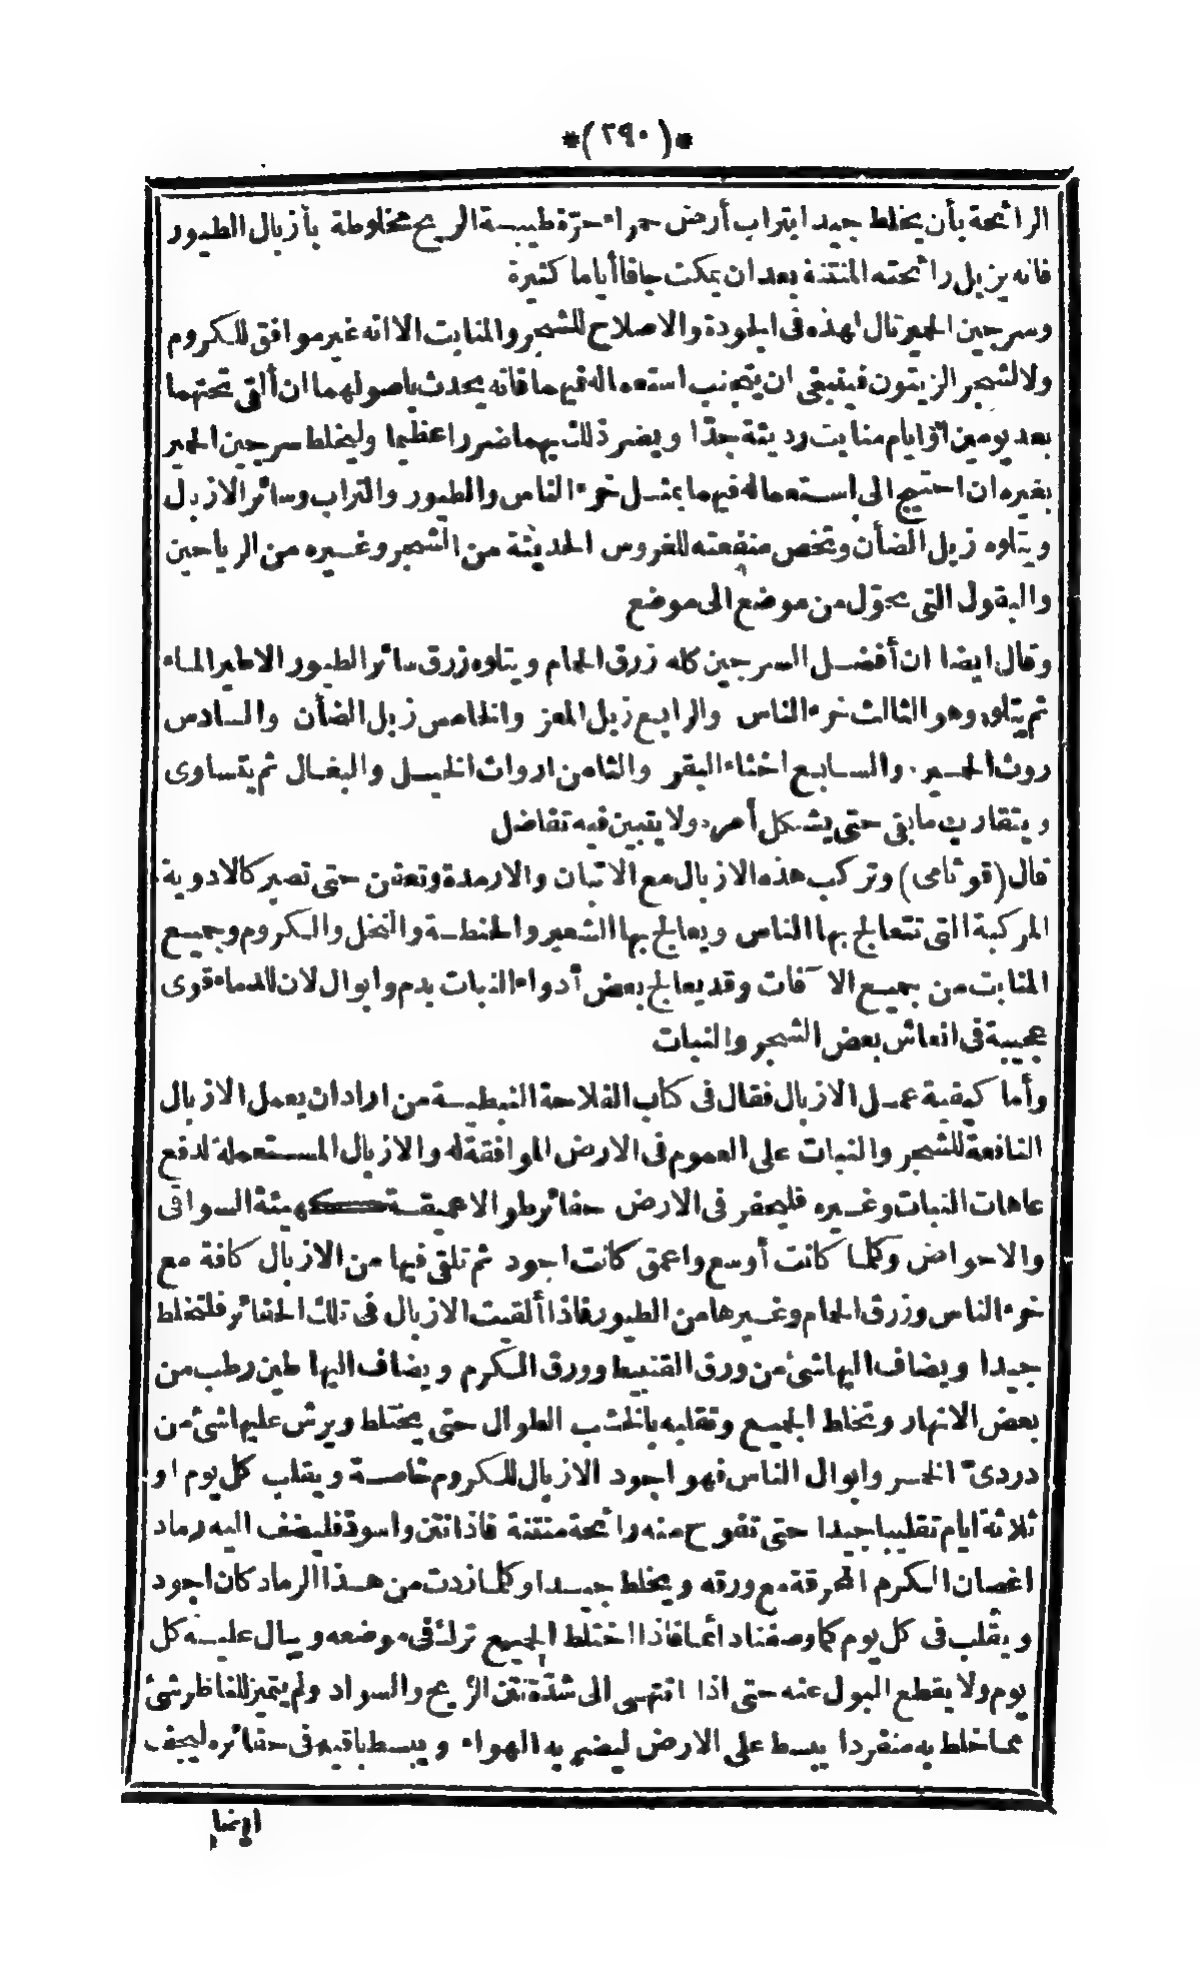 *(٢٩٠)*
الرائحة بأن يخلط جيدا بتراب أرض حمراء حرّة طيبة الريح مخلوطة بأزبال الطيور
فانه يزيل رائحته المنتنة بعد ان يمكث جافا أياما كثيرة
وسرجين الحمير تال لهذه فى الجودة والاصلاح للشجر والمنابت الا انه غير موافق للكروم
ولا لشجر الزيتون فينبغى ان يتجنب استعماله فيهما فانه يحدث بأصولهما ان ألقى تحتهما
بعد يومين أو أيام منابت رديئة جدّا ويضر ذلك بهما ضررا عظيما وليخلط سرجين الحمير
بغيره ان احتيج الى استعماله فيهما بمثل خرء الناس والطيور والتراب وسائر الازبال
ويتلوه زبل الضأن وتخص منفعته للغروس الحديثة من الشجر وغيره من الرياحين
والبقول التى تحوّل من موضع الى موضع
وقال ايضا ان أفضل السرجين كله زرق الحمام ويتلوه زرق سائر الطيور الا طير الماء
ثم يتلوه وهو الثالث خرء الناس والرابع زبل المعز والخامس زبل الضأن والسادس
روث الحمير والسابع اخثاء البقر والثامن ارواث الخيل والبغال ثم يتساوى
ويتقارب ما بقى حتى يشكل أمره ولا يتبين فيه تفاضل
قال (قوثامى) وتركب هذه الازبال مع الاتبان والارمدة وتعفن حتى تصير كالادوية
المركبة التى تتعالج بها الناس ويعالج بها الشعير والحنطة والنخل والكروم وجميع
المنابت من جميع الآفات وقد يعالج بعض أدواء النبات بدم وابوال لان للدماء قوى
عجيبة فى انعاش بعض الشجر والنبات
وأما كيفية عمل الازبال فقال فى كتاب الفلاحة النبطية من اراد ان يعمل الازبال
النافعة للشجر والنبات على العموم فى الارض الموافقة له والازبال المستعملة لدفع
عاهات النبات وغيره فليحفر فى الارض حفائر طوالا عميقة كهيئة السواقى
والاحواض وكلما كانت أوسع واعمق كانت اجود ثم تلقى فيها من الازبال كافة مع
خرء الناس وزرق الحمام وغيرها من الطيور فاذا ألقيت الازبال فى تلك الحفائر فلتخلط
جيدا ويضاف اليها شئ من ورق القنبيط وورق الكرم ويضاف اليها طين رطب من
بعض الانهار وتخلط الجميع وتقلبه بالخشب الطوال حتى يختلط ويرش عليها شئ من
دردىّ الخمر وابوال الناس فهو اجود الازبال للكروم خاصة ويقلب كل يوم او
ثلاثة ايام تقليبا جيدا حتى تفوح منه رائحة منتنة فاذا نتن واسودّ فليضف اليه رماد
اغصان الكرم المحرقة مع ورقه ويخلط جيدا وكلما زدت من هذا الرماد كان اجود
ويقلب فى كل يوم كما وصفنا دائما فاذا اختلط الجميع ترك فى موضعه ويبال عليه كل
يوم ولا يقطع البول عنه حتى اذا انتهى الى شدّة نتن الريح والسواد ولم يتميز للناظر شئ
مما خلط به منفردا يبسط على الارض ليضربه الهواء ويبسط باقيه فى حفائره ليجف
ايضا